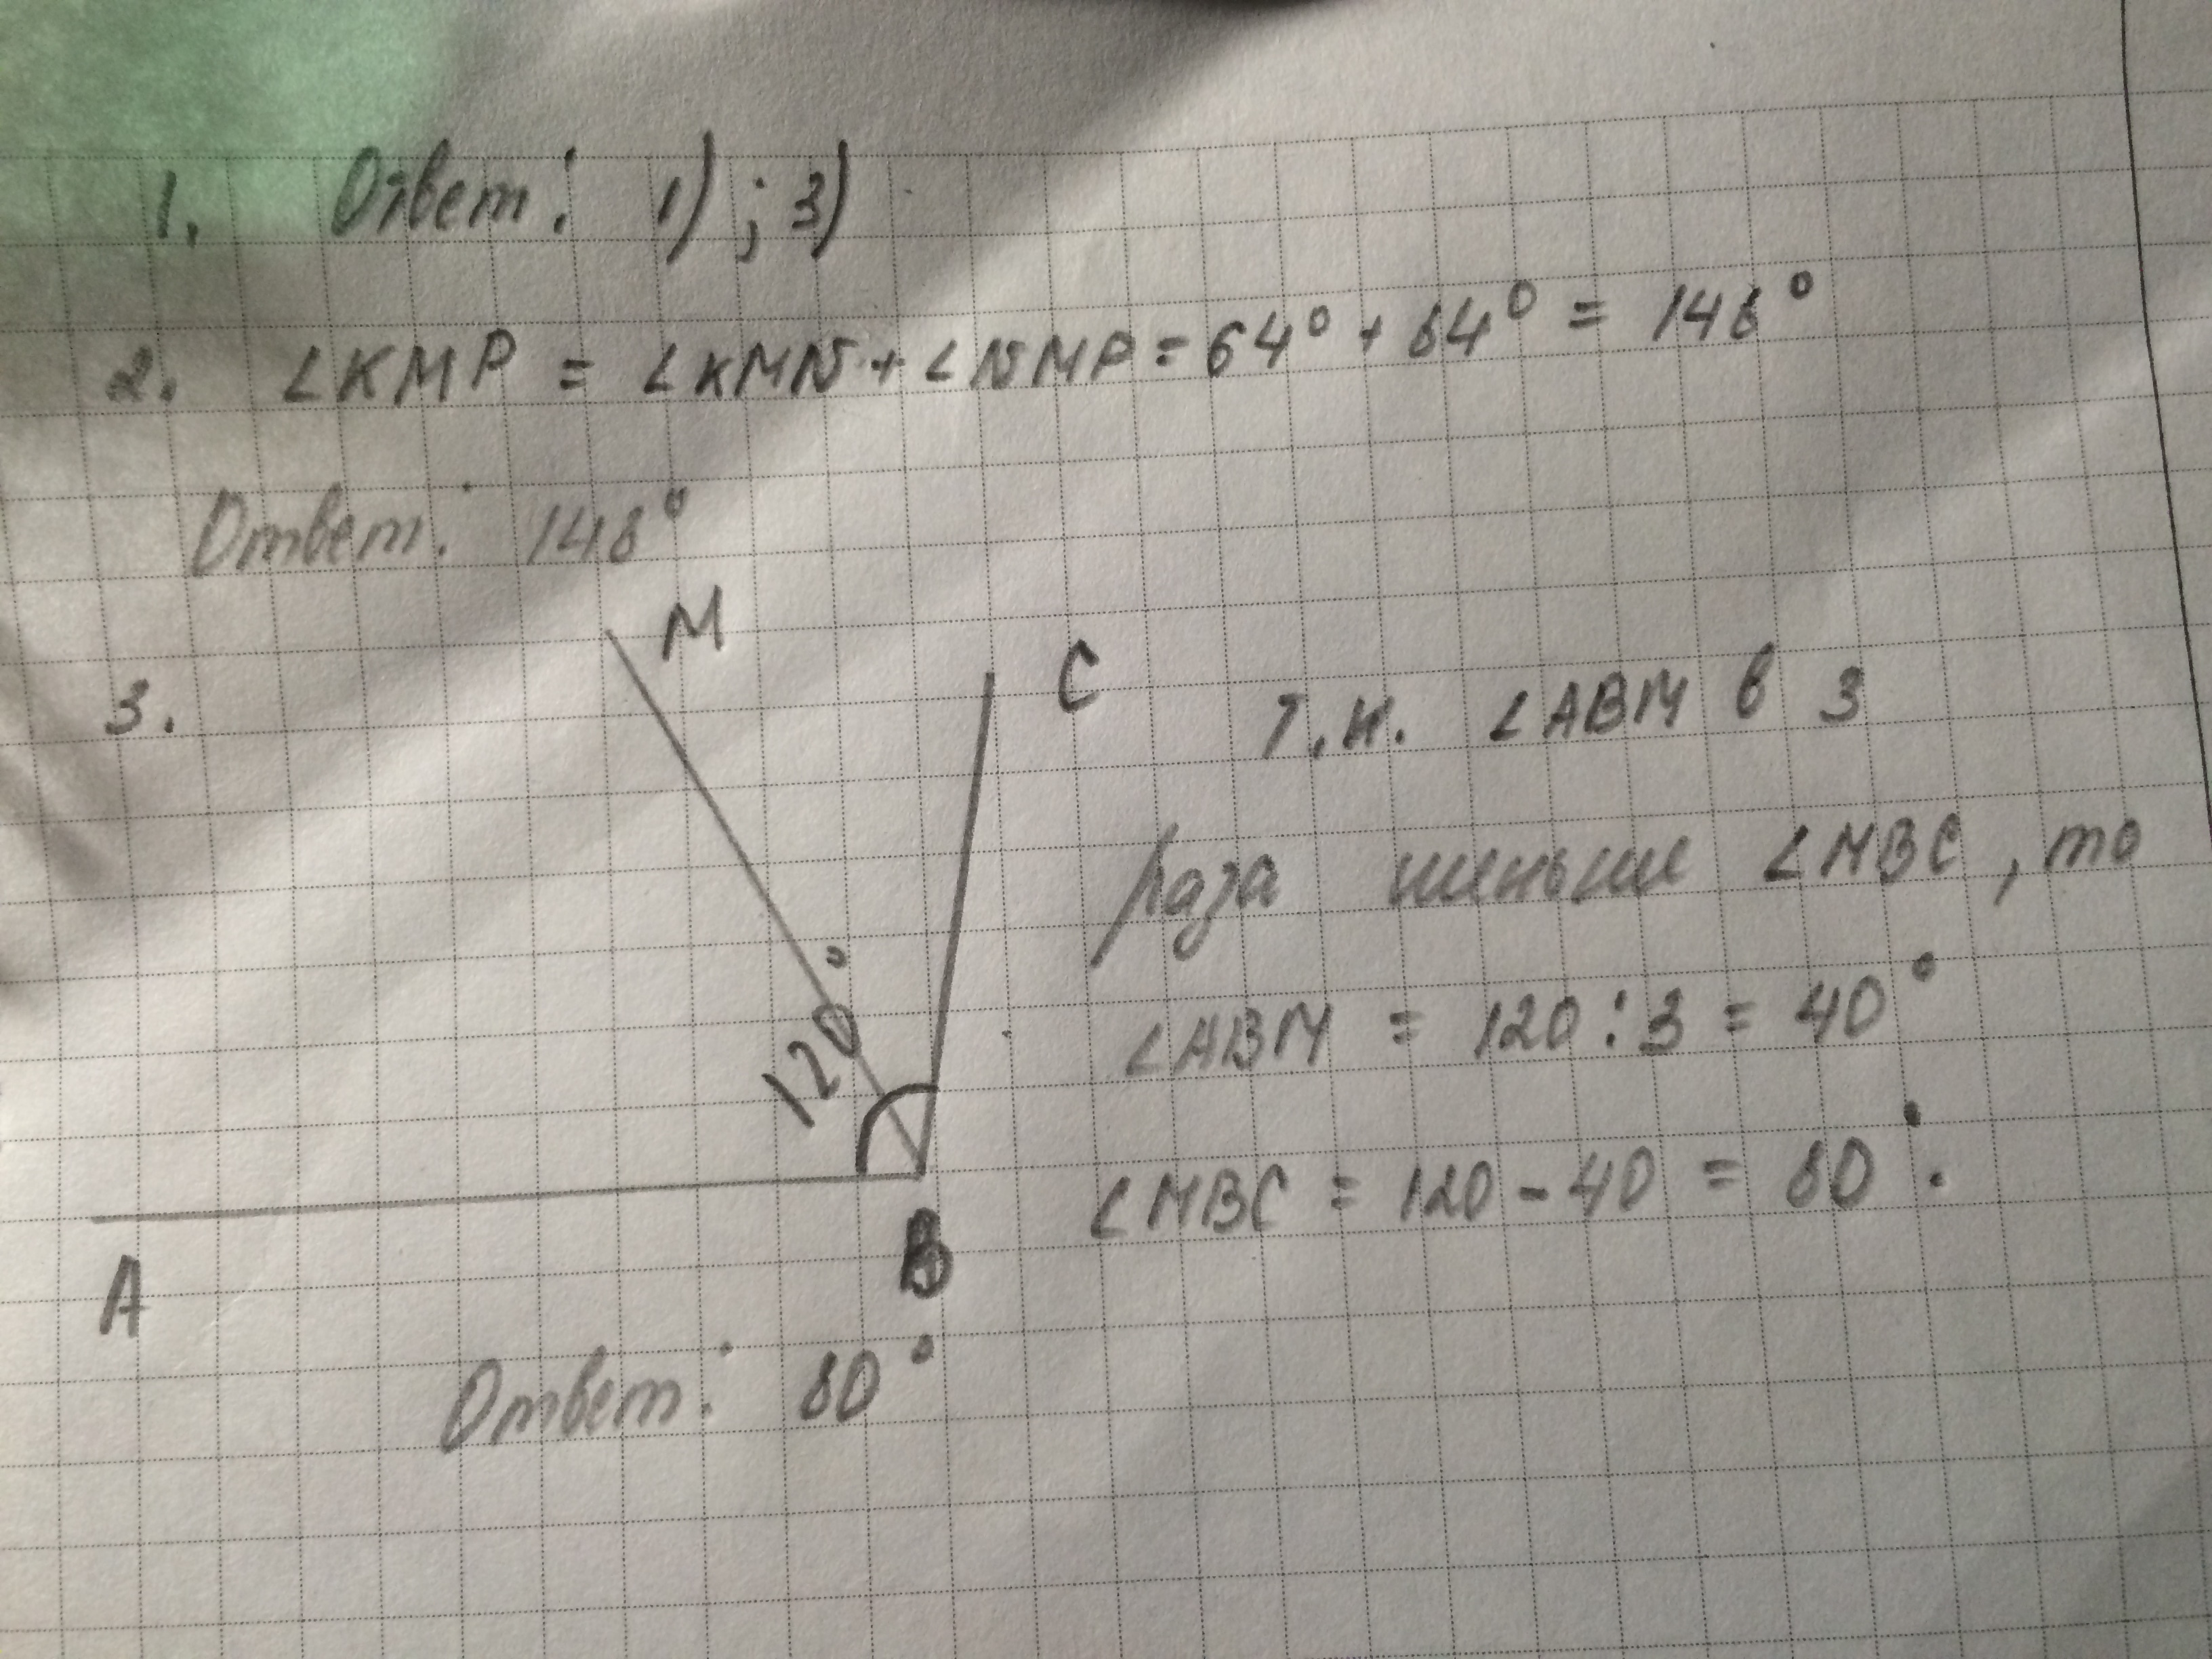 1. Ответ: 1); 3)
2. ∠KMP = ∠KMN + ∠NMP = 64° + 84° = 148°
Ответ: 148°
3.
M
C
120°
A
B
Т.к. ∠ABM в 3
раза меньше ∠MBC, то
∠ABM = 120 : 3 = 40°
∠MBC = 120 - 40 = 80°.
Ответ: 80°